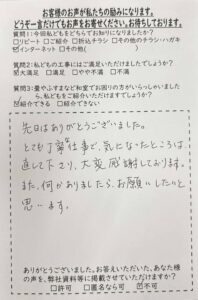 お客様のお声が私たちの励みになります。
どうぞ一言だけでもお声をお寄せください。お待ちしております。
質問1:今回私どもをどちらでお知りになりましたか?
□リピート □ご紹介 □折込チラシ □その他のチラシ・ハガキ
☑インターネット □その他( )
質問2:私どもの工事にはご満足いただけましたでしょうか?
☑大満足 □満足 □やや不満 □不満
質問3:畳やふすまなど和室でお困りの方がいらっしゃいましたら、私どもをご紹介いただけますでしょうか?
☑紹介できる □紹介できない
先日はありがとうございました。
とても丁寧な仕事で、気になったところは
直して下さり、大変感謝しております。
また、何かありましたら、お願いしたいと
思います。
ありがとうございました。お答えいただいた、あなた様
の声を、弊社資料等に掲載させていただけますか?
□許可 □匿名なら可 ☑不可